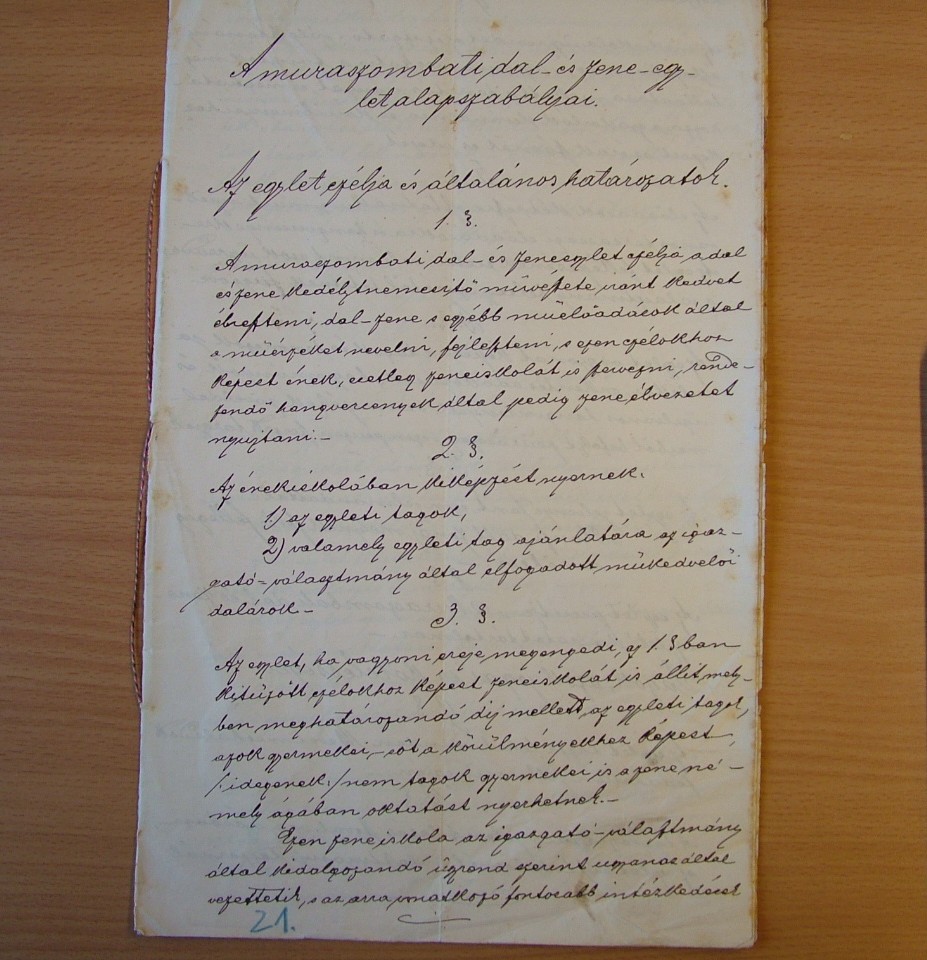 A muraszombati dal- és zene-egy-
let alapszabályai.
Az egylet czélja és általános határozatok.
1. §.
A muraszombati dal- és zeneegylet czélja a dal
és zene kedélytnemesitő művészete iránt kedvet
ébreszteni, dal-zene s egyébb műelőadások által
a műérzéket nevelni, fejleszteni, s ezen czélokhoz
képest ének, esetleg zeneiskolát is szervezni, rende-
zendő hangversenyek által pedig zene élvezetet
nyujtani.-
2. §.
Az énekiskolában kiképzést nyernek:
1) az egyleti tagok,
2) valamely egyleti tag ajánlatára az igaz-
gató-választmány által elfogadott műkedvelői
dalárok.-
3. §.
Az egylet, ha vagyoni ereje megengedi, az 1. § ban
kitüzött czélokhoz képest zeneiskolát is állit, mely-
ben meghatározandó dij mellett az egyleti tagok,
azok gyermekei,- sőt a körülményekhez képest
/:idegenek:/ nem tagok gyermekei is a zene né-
mely ágában oktatást nyerhetnek.-
Ezen zeneiskola az igazgató-választmány
által kidolgozandó ügyrend szerint ugyanaz által
vezettetik, s az arra vonatkozó fontosabb intézkedések
21.